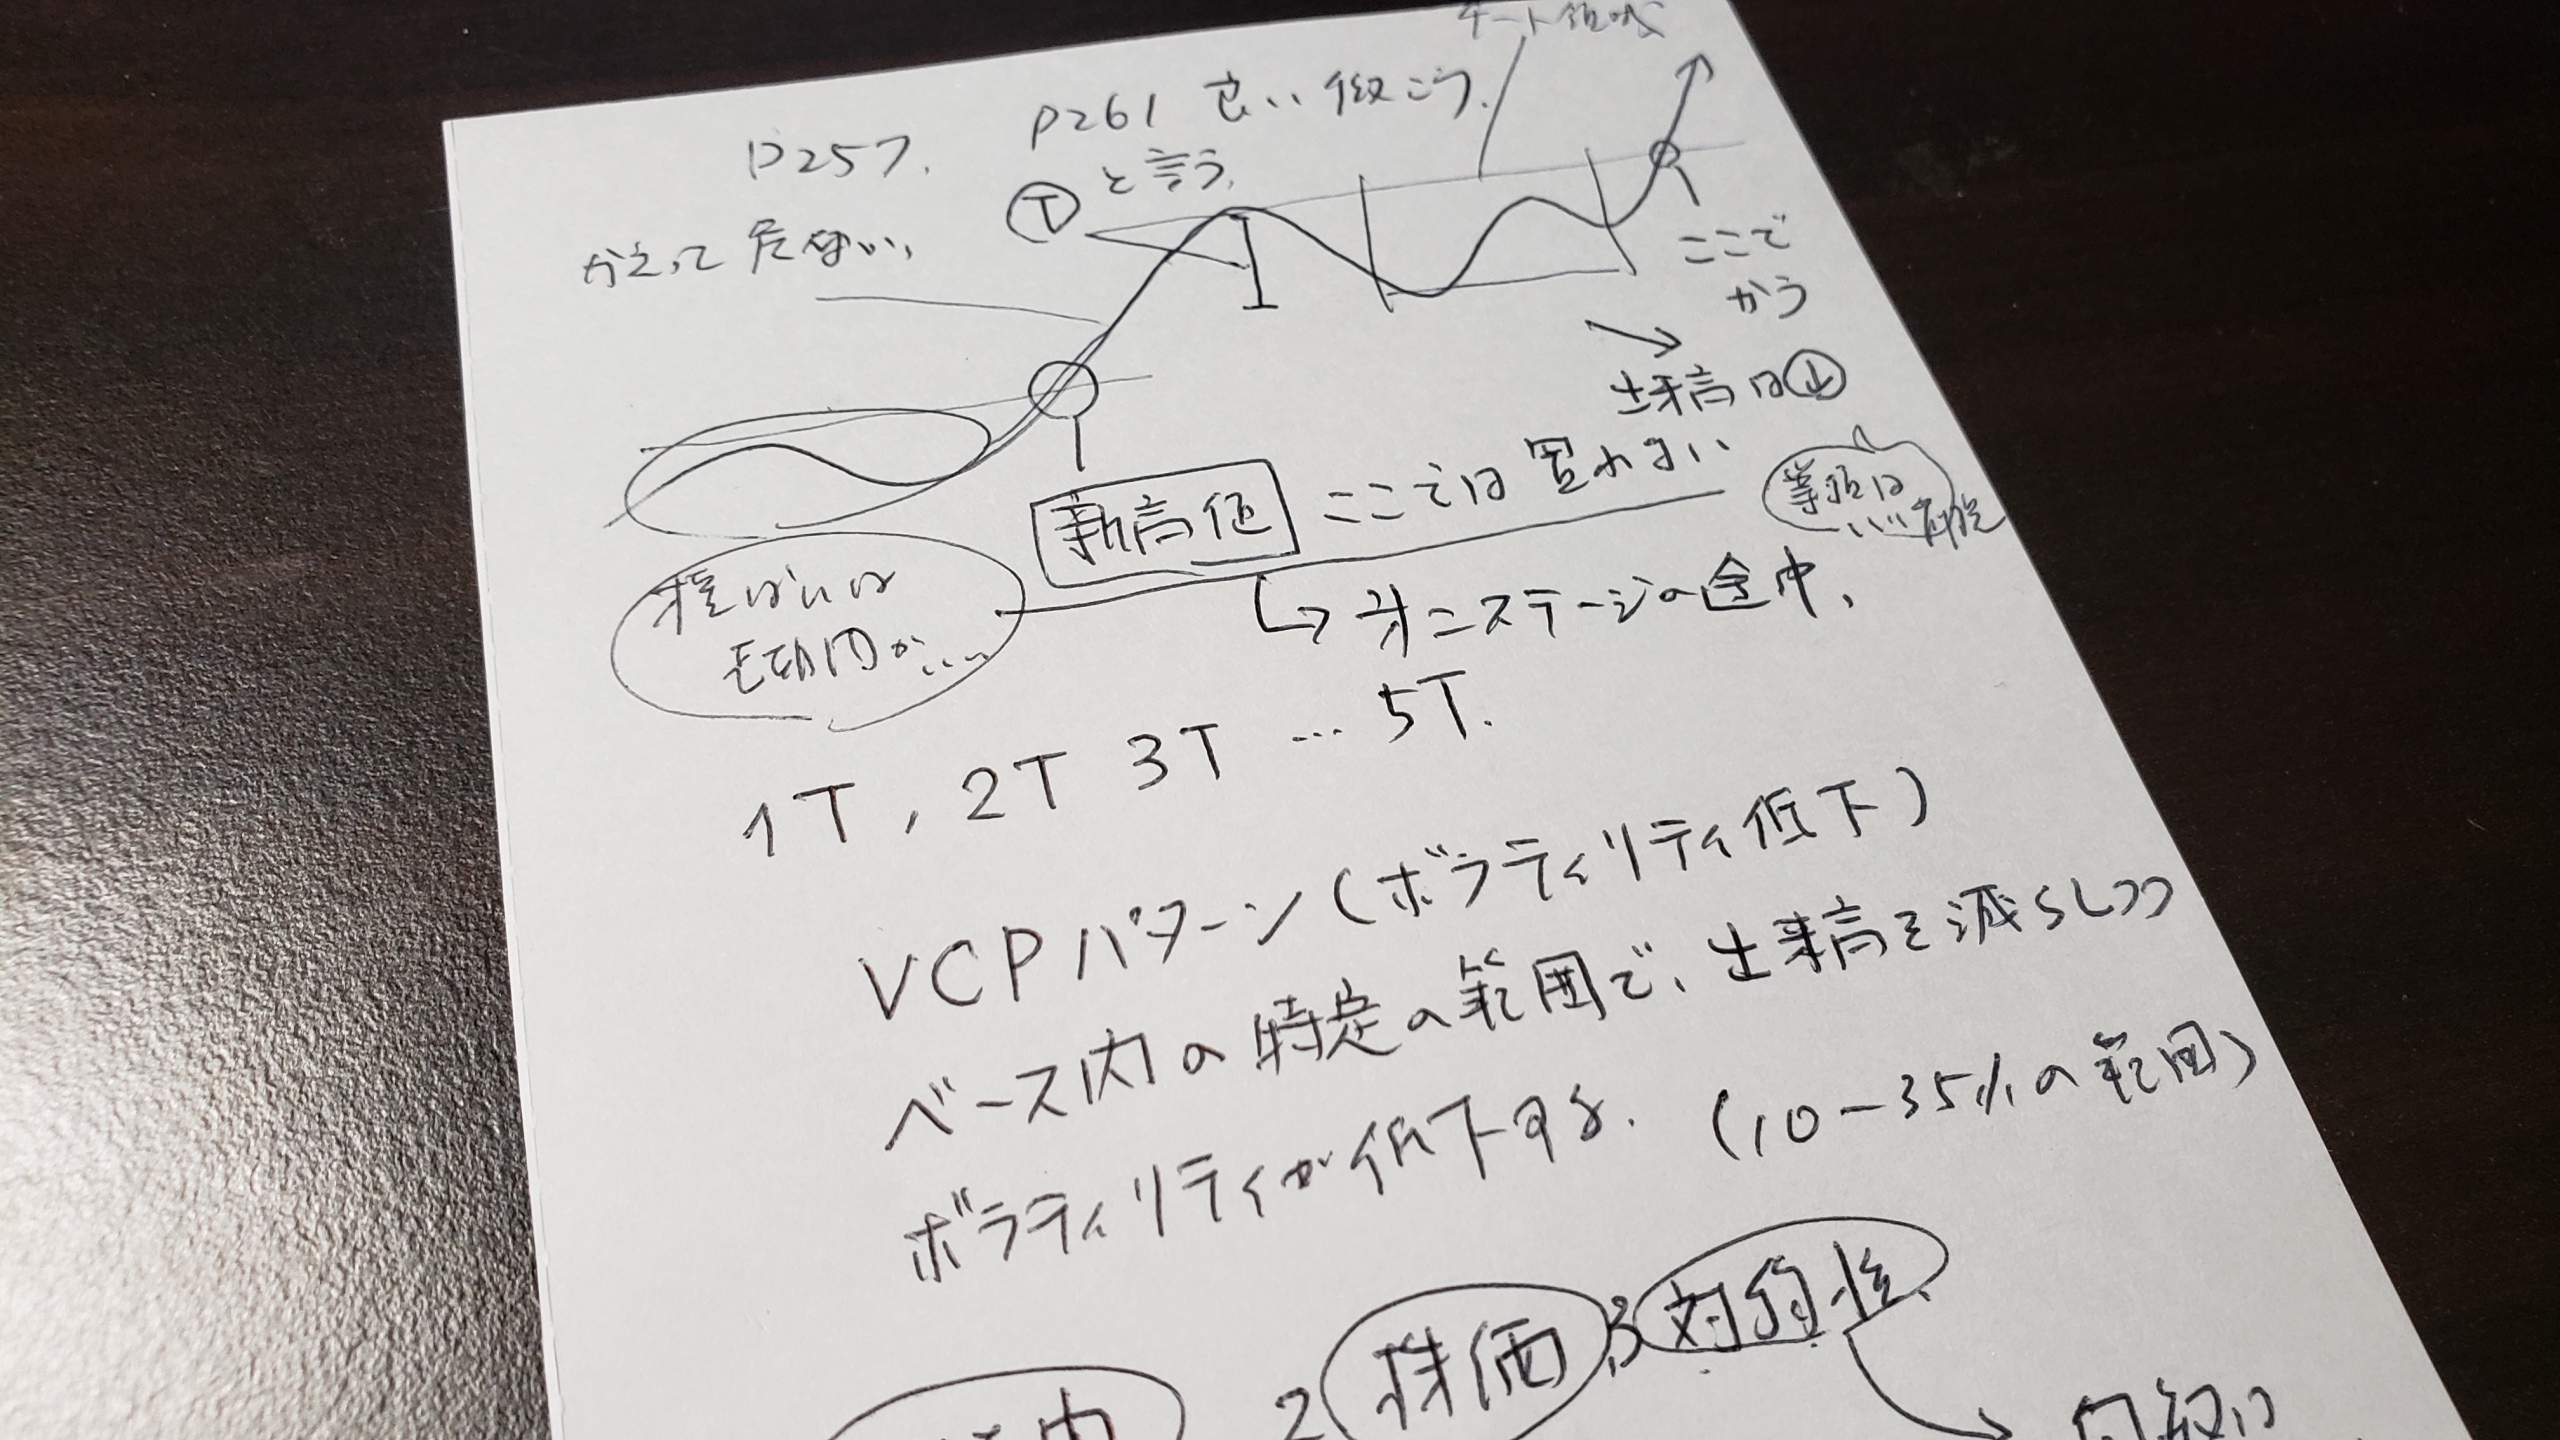 チート領域
P257.
P261 良い微こう.
Ⓣと言う.
かえって危ない、
ここで
かう
→
出来高は↓
新高値 ここでは買わない
↳第二ステージの途中、
1T, 2T 3T … 5T.
VCPパターン(ボラティリティ低下)
ベース内の特定の範囲で、出来高を減らしつつ
ボラティリティが低下する. (10-35%の範囲)
2 株価 3 対的性